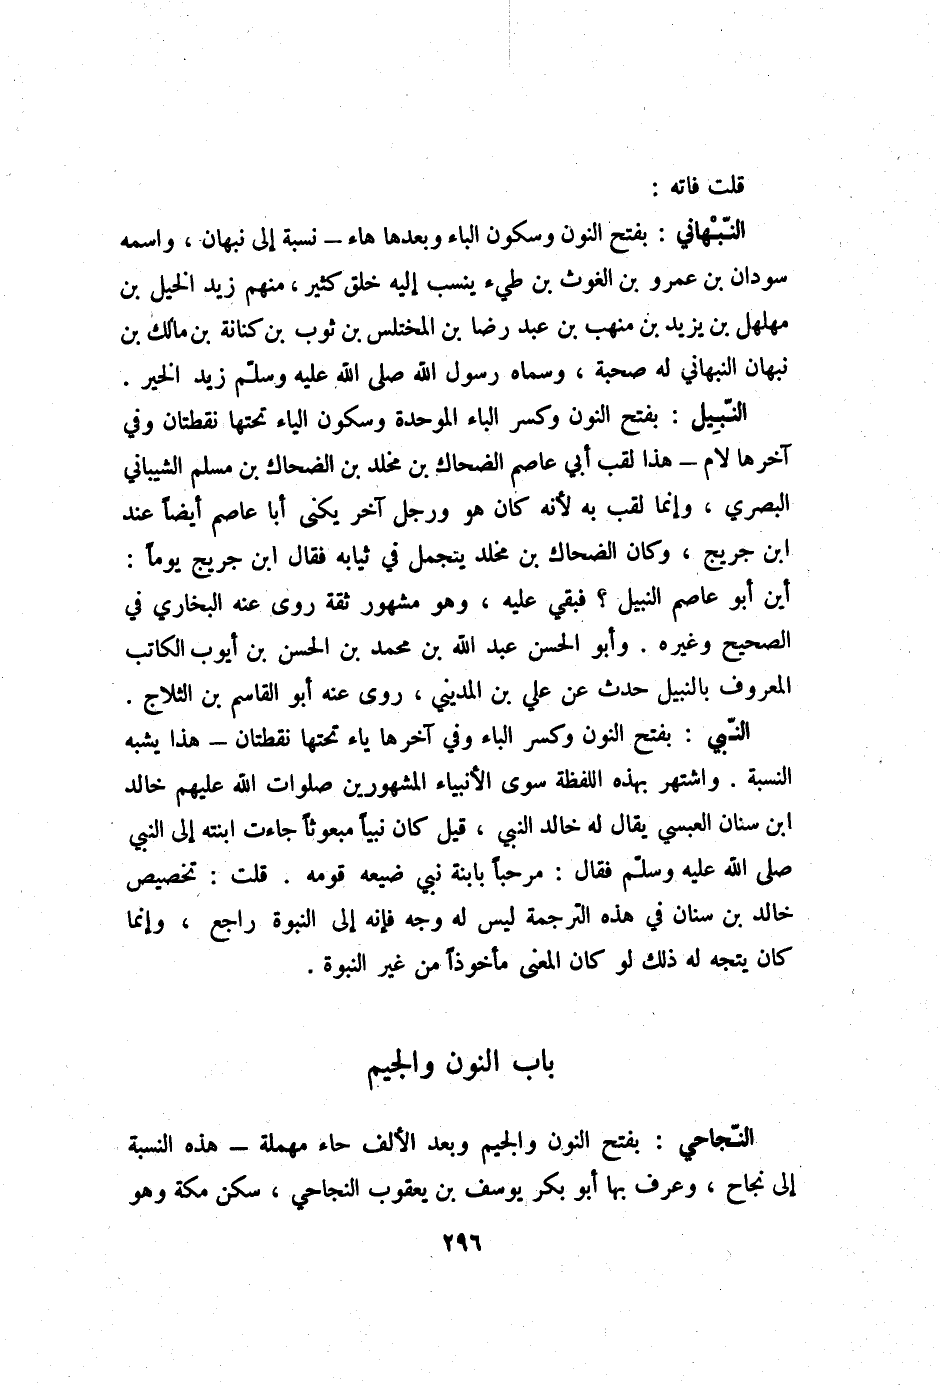 قلت فاته :
النَّبْهاني : بفتح النون وسكون الباء وبعدها هاء – نسبة إلى نبهان ، واسمه
سودان بن عمرو بن الغوث بن طيء ينسب إليه خلق كثير ، منهم زيد الخيل بن
مهلهل بن يزيد بن منهب بن عبد رضا بن المختلس بن ثوب بن كنانة بن مالك بن
نبهان النبهاني له صحبة ، وسماه رسول الله صلى الله عليه وسلّم زيد الخير .
النَّبِيل : بفتح النون وكسر الباء الموحدة وسكون الياء تحتها نقطتان وفي
آخرها لام – هذا لقب أبي عاصم الضحاك بن مخلد بن الضحاك بن مسلم الشيباني
البصري ، وإنما لقب به لأنه كان هو ورجل آخر يكنى أبا عاصم أيضاً عند
ابن جريج ، وكان الضحاك بن مخلد يتجمل في ثيابه فقال ابن جريج يوماً :
أين أبو عاصم النبيل ؟ فبقي عليه ، وهو مشهور ثقة روى عنه البخاري في
الصحيح وغيره . وأبو الحسن عبد الله بن محمد بن الحسن بن أيوب الكاتب
المعروف بالنبيل حدث عن علي بن المديني ، روى عنه أبو القاسم بن الثلاج .
النَّبي : بفتح النون وكسر الباء وفي آخرها ياء تحتها نقطتان – هذا يشبه
النسبة . واشتهر بهذه اللفظة سوى الأنبياء المشهورين صلوات الله عليهم خالد
ابن سنان العبسي يقال له خالد النبي ، قيل كان نبياً مبعوثاً جاءت ابنته إلى النبي
صلى الله عليه وسلّم فقال : مرحباً بابنة نبي ضيعه قومه . قلت : تخصيص
خالد بن سنان في هذه الترجمة ليس له وجه فإنه إلى النبوة راجع ، وإنما
كان يتجه له ذلك لو كان المعنى مأخوذاً من غير النبوة .
باب النون والجيم
النَّجاحي : بفتح النون والجيم وبعد الألف حاء مهملة – هذه النسبة
إلى نجاح ، وعرف بها أبو بكر يوسف بن يعقوب النجاحي ، سكن مكة وهو
٢٩٦